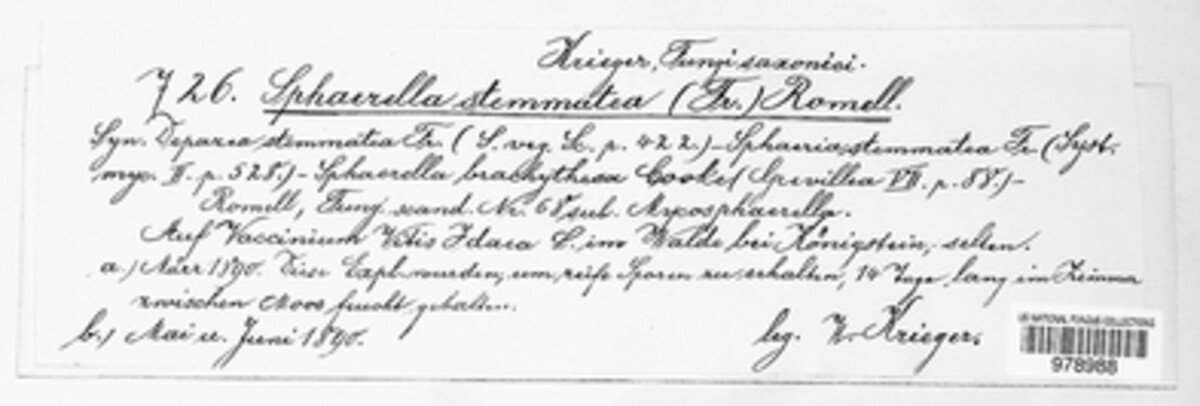 Krieger, Fungi saxonici.
726. Sphaerella stemmatea (Fr.) Romell.
Syn. Depazea stemmatea Fr. (S. veg. Sc. p. 422.) - Sphaeria stemmatea Fr. (Syst.
myc. II. p. 528.) - Sphaerella brachytheca Cooke (Grevillea VII. p. 88.) -
Romell, Fung. scand. Nr. 68 sub. Mycosphaerella.
Auf Vaccinium Vitis Idaea L. im Walde bei Königstein, selten.
a.) März 1890. Diese Expl. wurden, um reife Sporen zu erhalten, 14 Tage lang im Zimmer
zwischen Moos feucht gehalten.
b.) Mai u. Juni 1890.
leg. W. Krieger.
US NATIONAL FUNGUS COLLECTIONS
978988